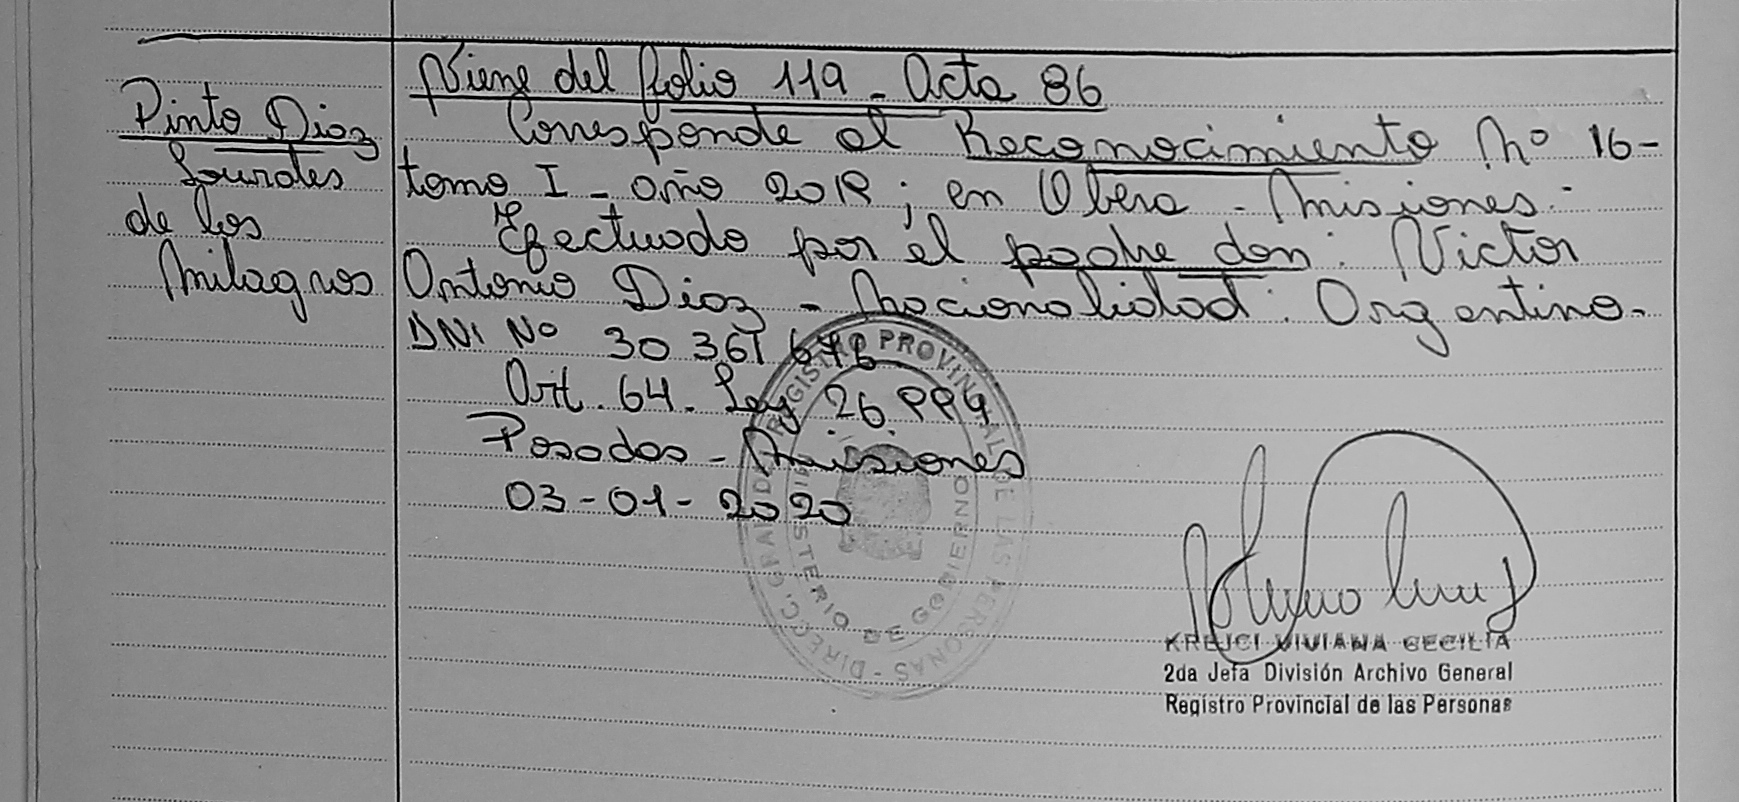 Viene del folio 119 - Acta 86
Pinto Diaz
Lourdes
de los
Milagros
Corresponde al Reconocimiento Nº 16-
tomo I - año 2019; en Obera - Misiones.
Efectuado por el padre don: Victor
Antonio Diaz - Nacionalidad: Argentino.
DNI Nº 30 361
Art. 64. Ley 26.994
Posadas - Misiones
03-01-2020
DIRECC. GRAL DE REGISTRO PROVINCIAL DE LAS PERSONAS -
MINISTERIO DE GOBIERNO
KREJCI VIVIANA CECILIA
2da Jefa División Archivo General
Registro Provincial de las Personas